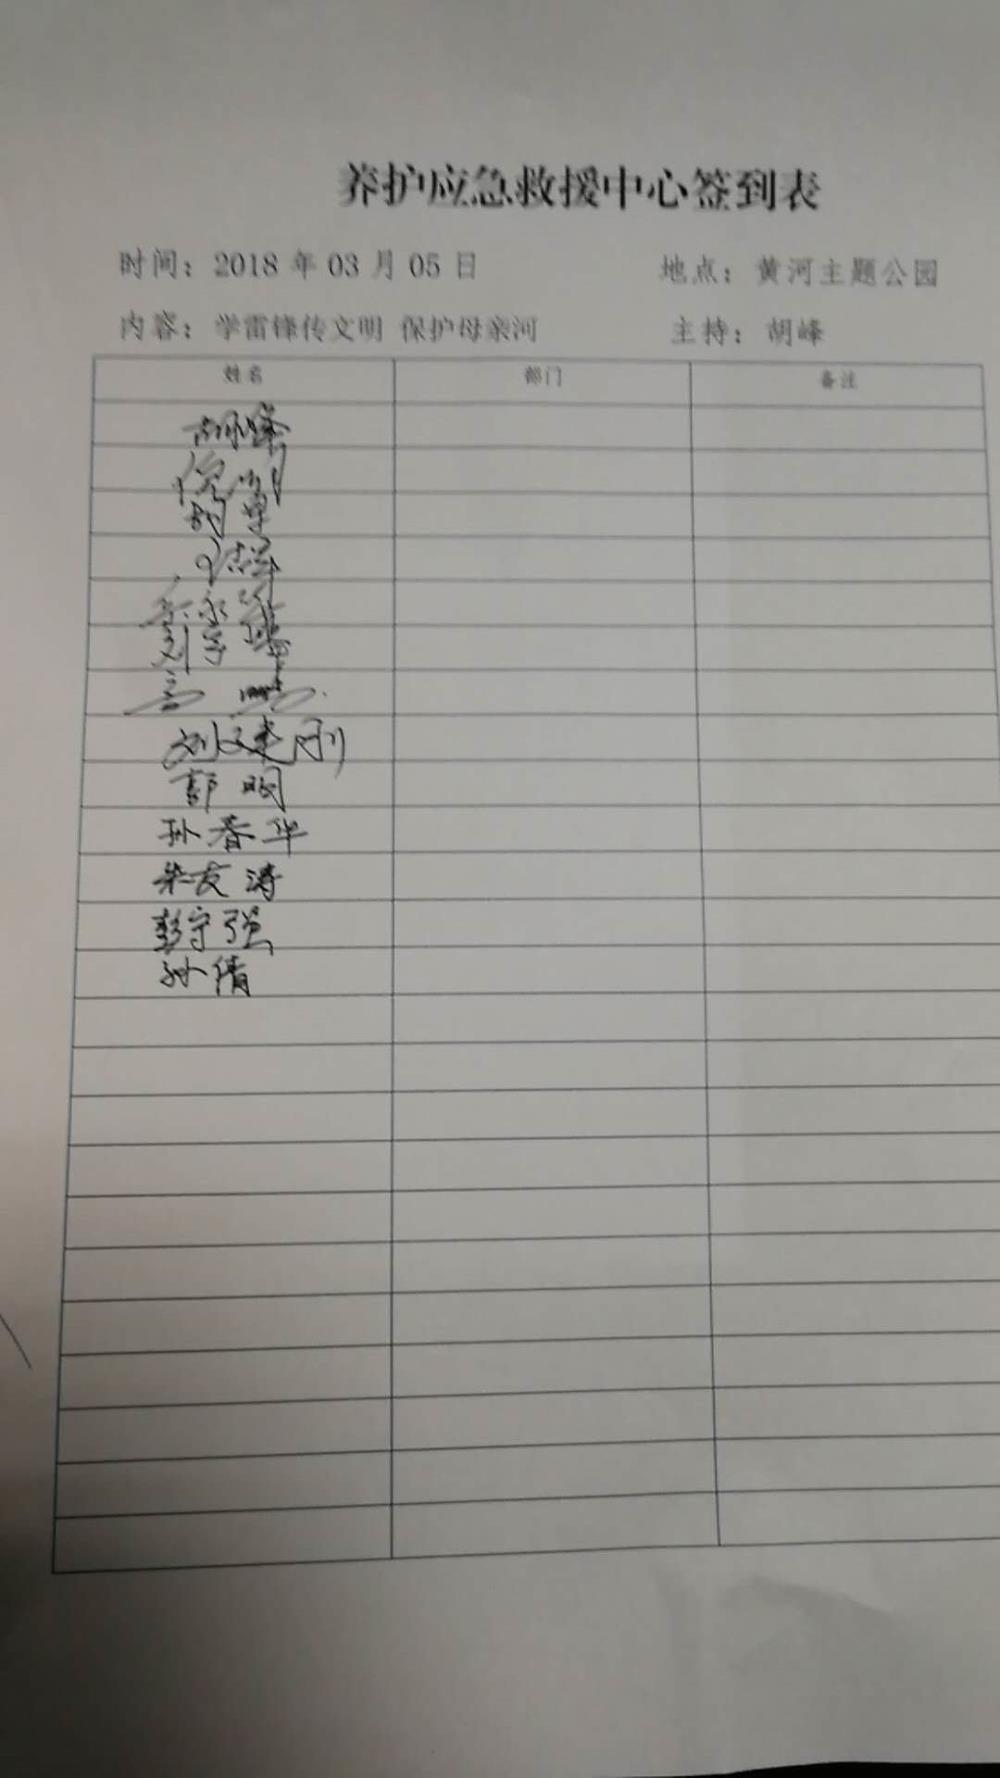 养护应急救援中心签到表
时间：2018 年 03 月 05 日 地点：黄河主题公园
内容：学雷锋传文明 保护母亲河 主持：胡峰
姓名 部门 备注
胡峰
刘文建刚
郭明
孙春华
朱友涛
彭守强
孙倩